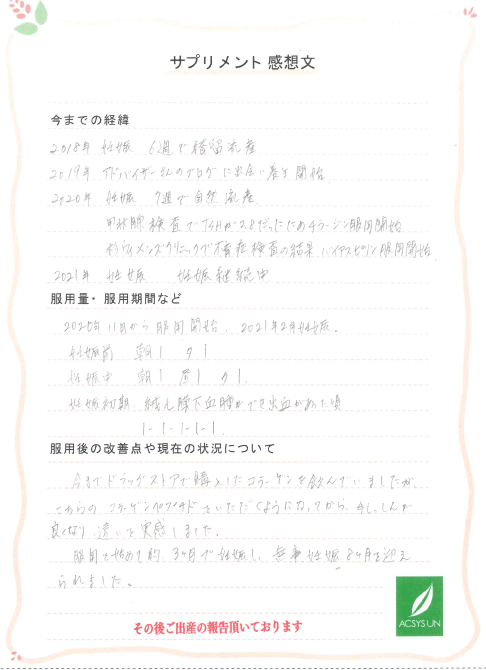 サプリメント 感想文
今までの経緯
2018年 妊娠 6週で稽留流産
2019年 アドバイザーさんのブログに出会い養生開始
2020年 妊娠 7週で自然流産
甲状腺検査でTSHが2.8だったためチラージン服用開始
杉ウィメンズクリニックで不育症検査の結果 バイアスピリン服用開始.
2021年 妊娠 妊娠継続中
服用量・服用期間など
2020年11月から服用開始、2021年2月妊娠。
妊娠前 朝1 夕1
妊娠中 朝1 昼1 夕1.
妊娠初期 絨毛膜下血腫ができ出血があった頃
1-1-1-1-1.
服用後の改善点や現在の状況について
今までドラッグストアで購入したコラーゲンを飲んでいましたが、
こちらの コラーゲンペプチドをいただくようになってから、
良くなり、違いを実感しました。
服用を始めて約3ヶ月で妊娠し、無事妊娠8ヶ月を迎え
られました。
その後ご出産の報告頂いております
ACSYS UN